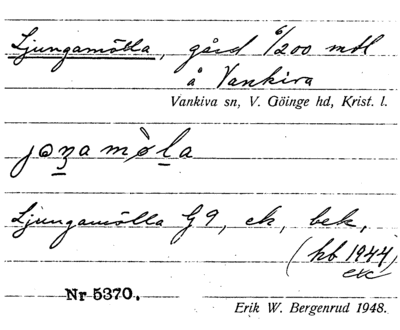 Ljungamölla, gård 6/200 mtl
å Vankiva
Vankiva sn, V. Göinge hd, Krist. l.
Ljungamölla G9, ek, bek,
(hb 1944)
exc
Nr 5370.
Erik W. Bergenrud 1948.